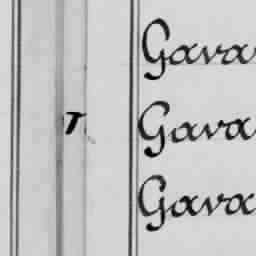 Gava
T Gava
Gava